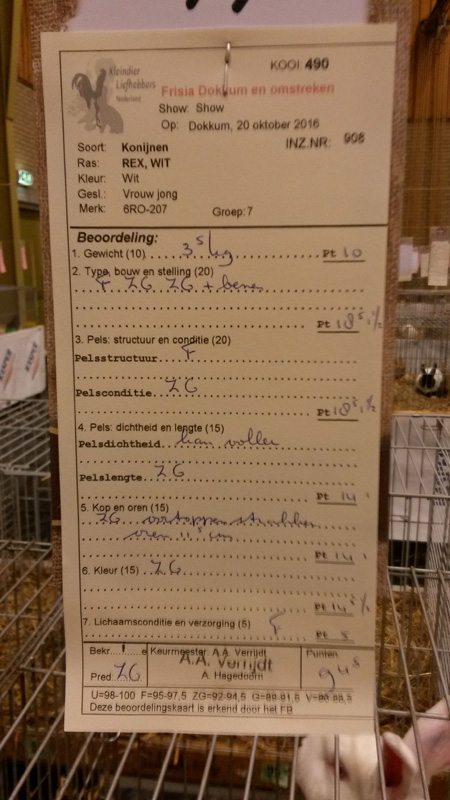 Kleindier
Liefhebbers
Nederland
KOOI: 490
Frisia Dokkum en omstreken
Show: Show
Op: Dokkum, 20 oktober 2016
INZ.NR: 908
Soort: Konijnen
Ras: REX, WIT
Kleur: Wit
Gesl.: Vrouw jong
Merk: 6RO-207 Groep: 7
Beoordeling:
1. Gewicht (10) 3⁵ kg Pt 10
2. Type, bouw en stelling (20)
F ZG ZG + benen
Pt 18⁵ ½
3. Pels: structuur en conditie (20)
Pelsstructuur F
Pelsconditie ZG
Pt 18⁵ ½
4. Pels: dichtheid en lengte (15)
Pelsdichtheid kan voller
Pelslengte ZG
Pt 14
5. Kop en oren (15)
ZG oortoppen
oren 11⁵ cm
Pt 14
6. Kleur (15) ZG
Pt 14 ½
7. Lichaamsconditie en verzorging (5) F
Pt 5
Bekr. e Keurmeester: A.A. Verrijdt Punten
A.A. Verrijdt
Pred: ZG A. Hagedoorn 94⁵
U=98-100 F=95-97,5 ZG=92-94,5 G=89-91,5 V=86-88,5
Deze beoordelingskaart is erkend door het FB